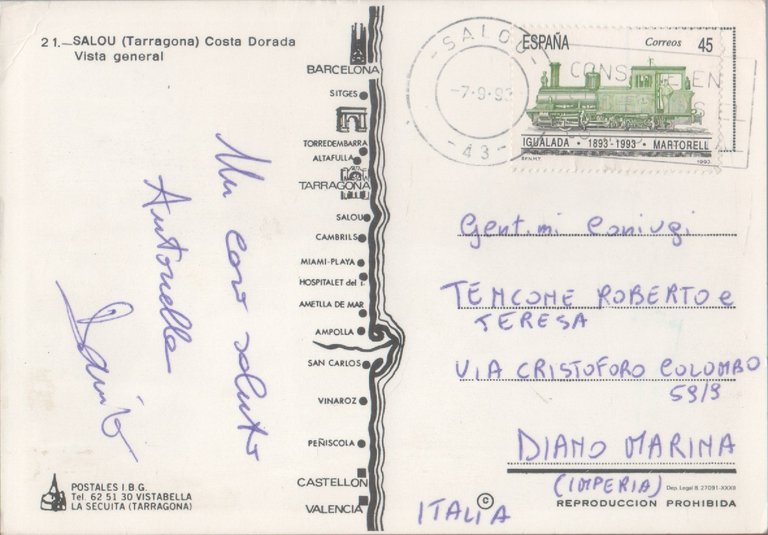 21.—SALOU (Tarragona) Costa Dorada
Vista general
Un caro saluto
Antonella
Danilo
POSTALES I.B.G.
Tel. 62 51 30 VISTABELLA
LA SECUITA (TARRAGONA)
BARCELONA
SITGES
TORREDEMBARRA
ALTAFULLA
TARRAGONA
SALOU
CAMBRILS
MIAMI-PLAYA
HOSPITALET del I.
AMETLLA DE MAR
AMPOLLA
SAN CARLOS
VINAROZ
PEÑISCOLA
CASTELLON
VALENCIA
SALOU
-7·9·93
-43-
ESPAÑA Correos 45
IGUALADA · 1893-1993 · MARTORELL
1993
Gent.mi Coniugi
TENCONE ROBERTO e
TERESA
VIA CRISTOFORO COLOMBO
59/9
DIANO MARINA
(IMPERIA)
Dep. Legal B. 27091-XXXII
ITALIA
© REPRODUCCION PROHIBIDA